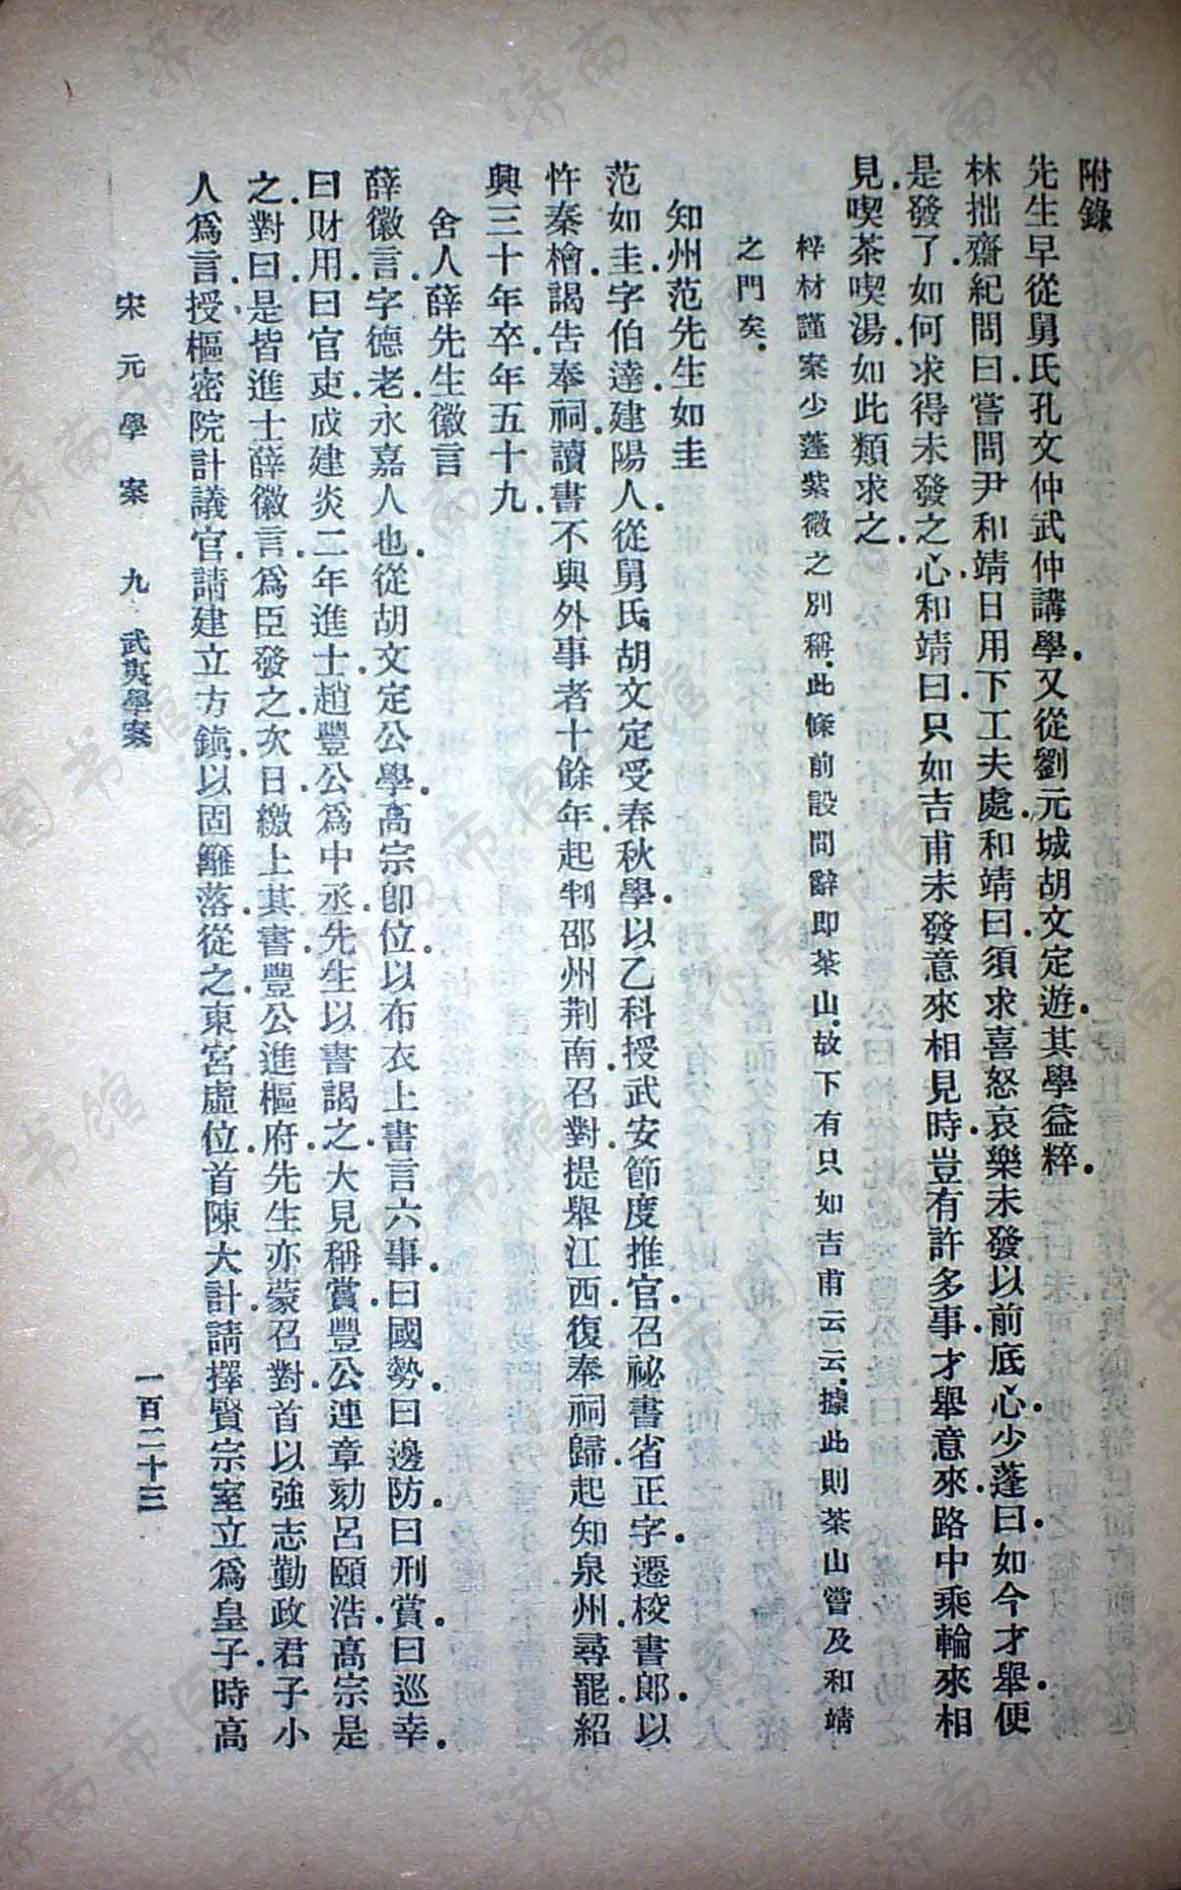 附錄
先生早從舅氏孔文仲武仲講學.又從劉元城胡文定遊.其學益粹.
林拙齋紀問曰.嘗問尹和靖日用下工夫處.和靖曰.須求喜怒哀樂未發以前底心.少蓬曰.如今才舉.便
是發了.如何求得未發之心.和靖曰.只如吉甫未發意來相見時.豈有許多事.才舉意來.路中乘輪來相
見.喫茶喫湯.如此類求之.
梓材謹案.少蓬紫微之別稱.此條前設問辭即茶山.故下有只如吉甫云云.據此則茶山嘗及和靖
之門矣.
知州范先生如圭
范如圭.字伯逵.建陽人.從舅氏胡文定受春秋學.以乙科授武安節度推官.召祕書省正字.遷校書郎.以
忤秦檜.謁告奉祠.讀書不與外事者十餘年.起判邵州荆南.召對.提舉江西.復奉祠歸.起知泉州.尋罷.紹
興三十年卒.年五十九.
舍人薛先生徽言
薛徽言.字德老.永嘉人也.從胡文定公學.高宗卽位.以布衣上書言六事.曰國勢.曰邊防.曰刑賞.曰巡幸.
曰財用.曰官吏.成建炎二年進士.趙豐公爲中丞.先生以書謁之.大見稱賞.豐公連章劾呂頤浩.高宗是
之.對曰.是皆進士薛徽言爲臣發之.次日繳上其書.豐公進樞府.先生亦蒙召對.首以強志勤政君子小
人爲言.授樞密院計議官.請建立方鎮.以固籬落.從之.東宮虛位.首陳大計.請擇賢宗室立爲皇子.時高
宋元學案 九 武夷學案
一百二十三
济南市图书馆